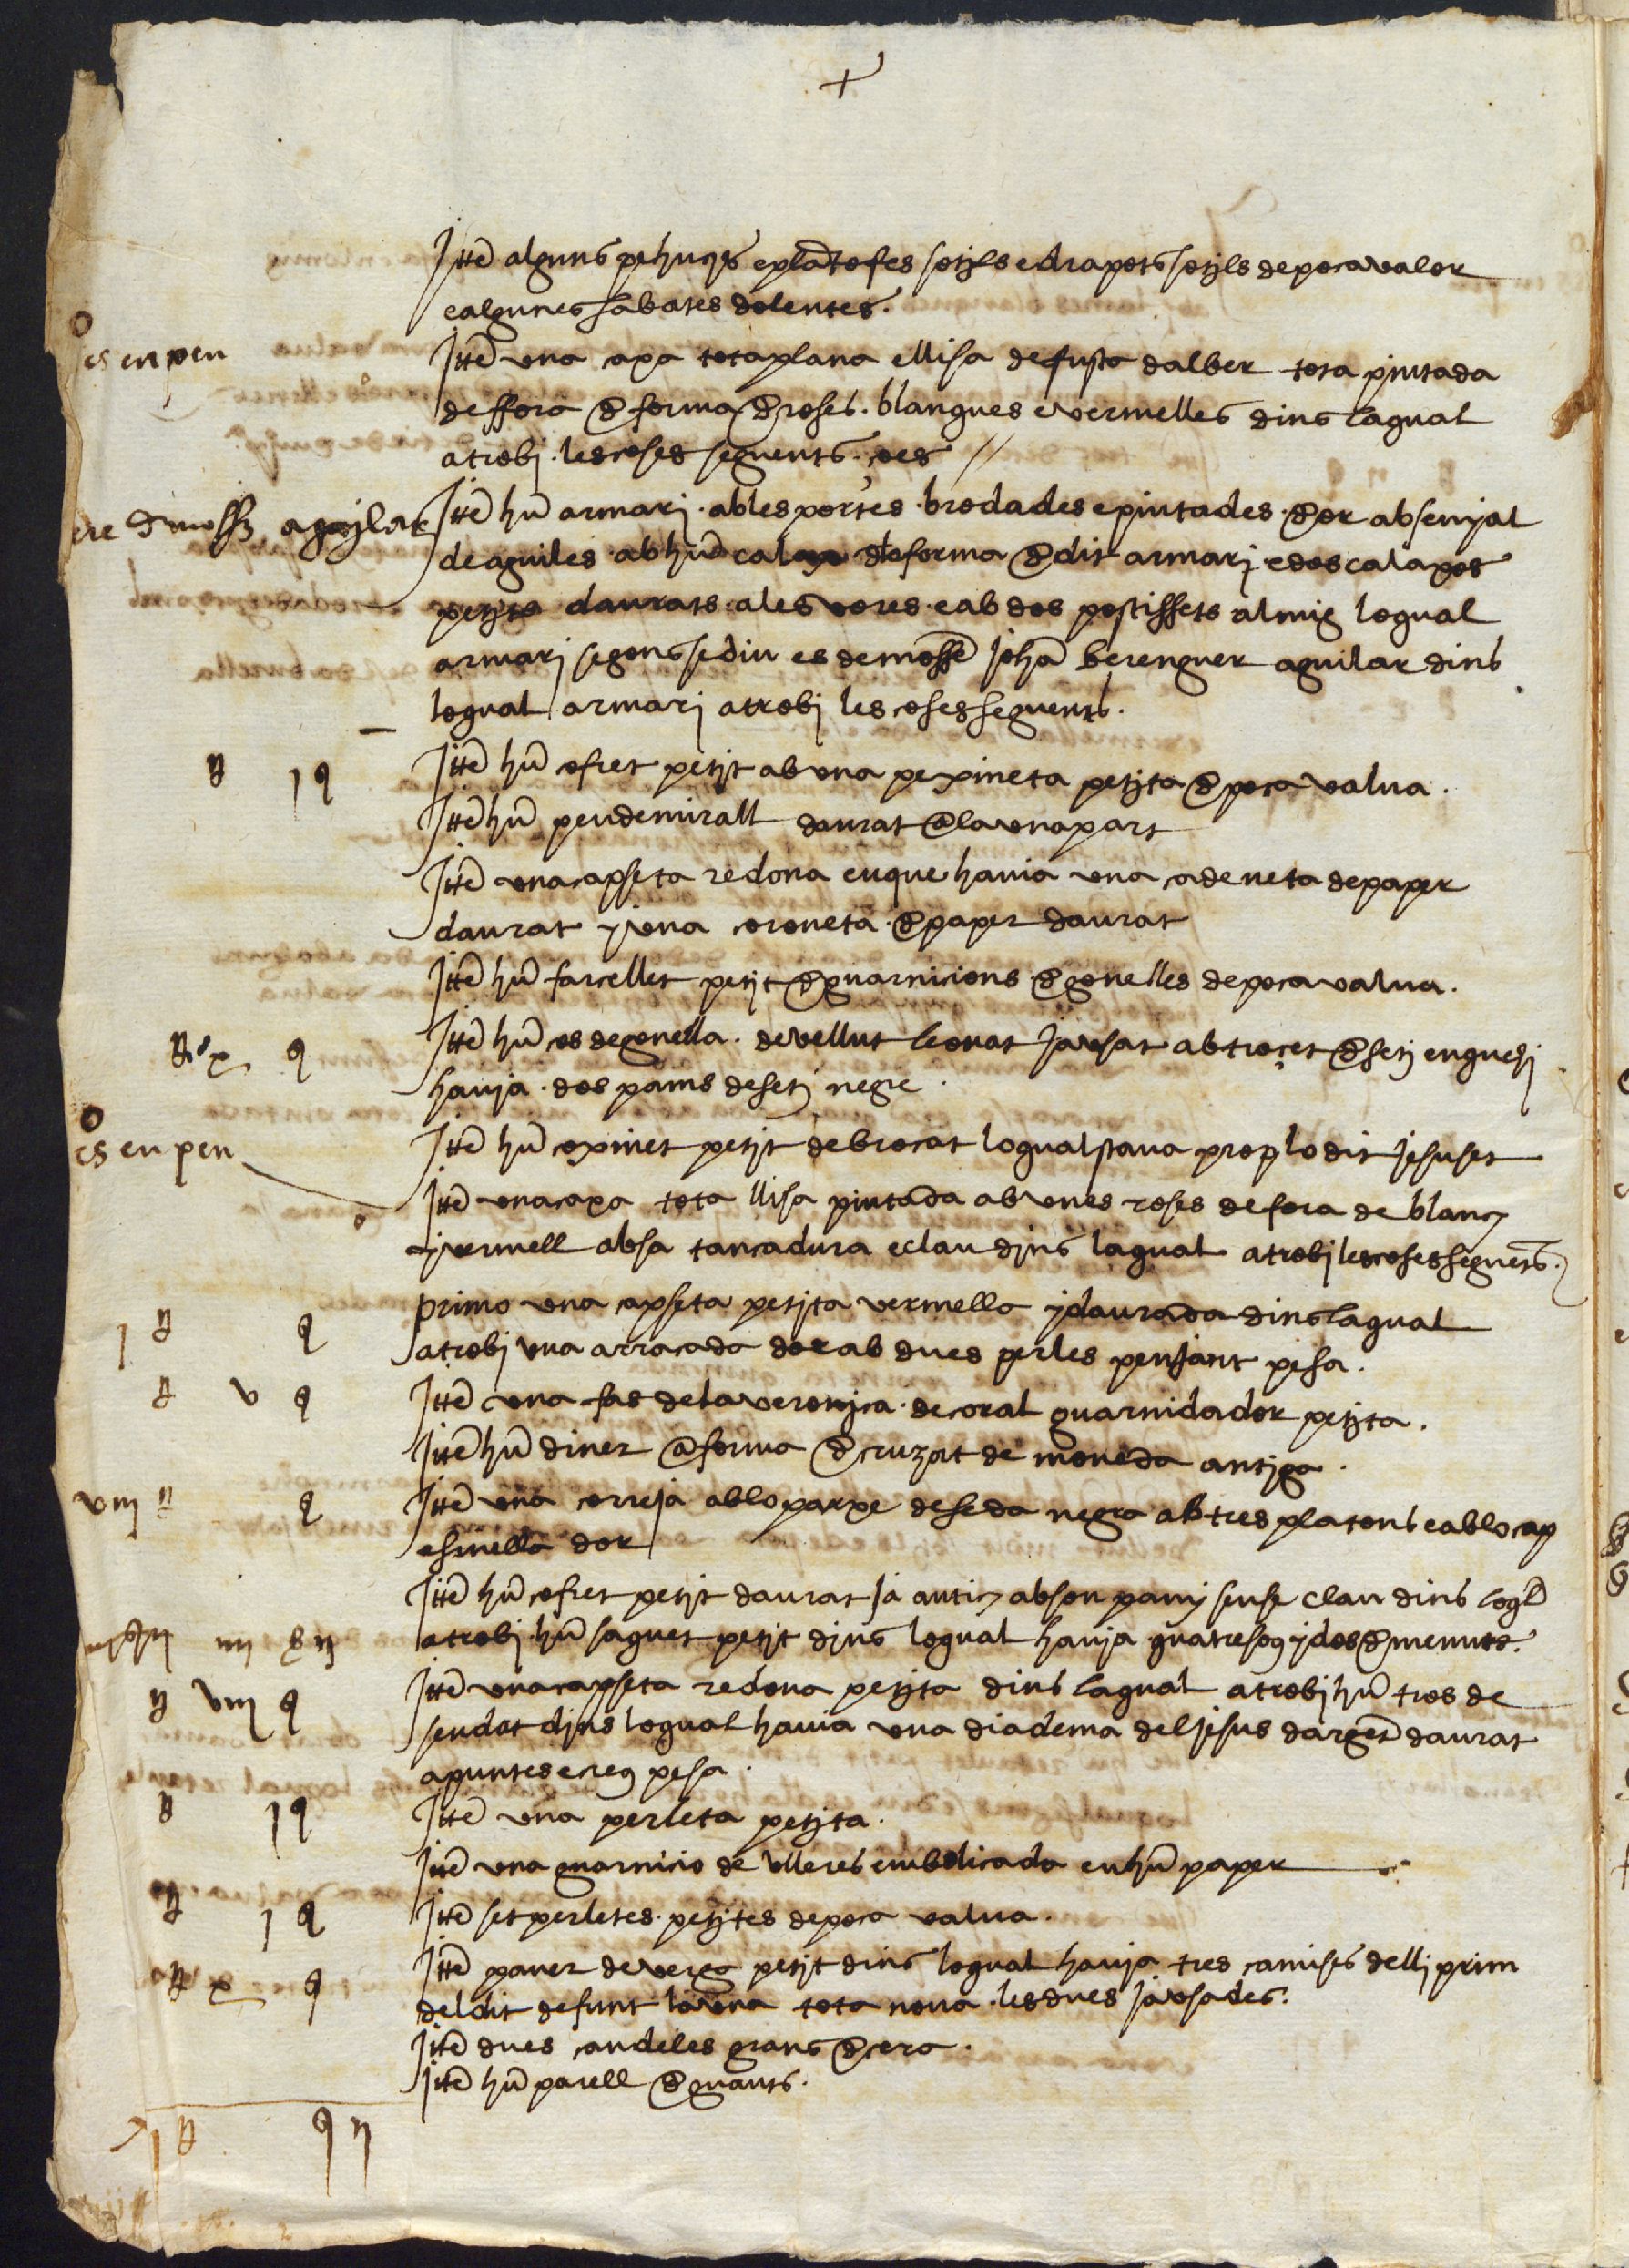 +
Itē alguns pehuchs e plātofes sotils e drapots sotils de poca valor
e algunes sabates dolentes.
es en pen
Itē una caxa tota plana e llisa de fusta dalber tota pintada
deffora de forma de roses . blanques e vermelles dins la qual
atrobi . les coses seguents . ço es //
ere de mossē aguilar
Itē hū armari . ab les portes . brodades e pintades . de or ab senyal
de aguiles . ab hū calax de forma de dit armari e dos calaxos
petits daurats . a les vores . e ab dos postissets al mig lo qual
armari segons se diu es de mossē johā berenguer aguilar dins
lo qual armari atrobi les coses seguents .
Itē hū cofret petit ab una pexineta petita de poca valua .
Itē hū peu de mirall daurat a la una part
Itē una capseta redona en que havia una cadeneta de paper
daurat y una coroneta . de paper daurat
Itē hū farcellet petit de guarnicions de gonelles de poca valua .
Itē hū cos de gonella . de vellut leonat ja usat ab troçet de seti en que hi
havia . dos pams de seti negre .
es en pen
Itē hū coxinet petit de brocat lo qual stava prop lo dit jesuset
Itē una caxa tota llisa pintada ab unes roses defora de blanch
y vermell ab sa tancadura e clau dins la qual atrobi les coses seguēts .
primo una capseta petita vermella y daurada dins la qual
atrobi una arracada dor ab dues perles penjant pesa .
v
Itē una fas de la veronica . de coral guarnida dor petita .
Itē hū diner a forma de cruzat de moneda antiga .
viij
Itē una correja ab lo parxe de seda negra ab tres platons e ab lo cap
e sivella dor
Itē hū cofret petit daurat ja antich ab son pany sense clau dins loql
atrobi . hū saquet petit dins lo qual havia quatre sous y dos de menuts .
viij
Itē una capseta redona petita dins la qual atrobi hū tros de
sendat dins lo qual havia una diadema del jesus dargēt daurat
a puntes e creu pesa .
Itē una perleta petita .
Itē una guarnicio de ulleres embolicada en hū paper
Itē set perletes . petites de poca valua .
Itē paner de verga petit dins lo qual havia tres camises de lli prim
del dit defunt la una tota nova . les dues ja usades .
Itē dues candeles grans de cera .
Itē hū parell de guants .